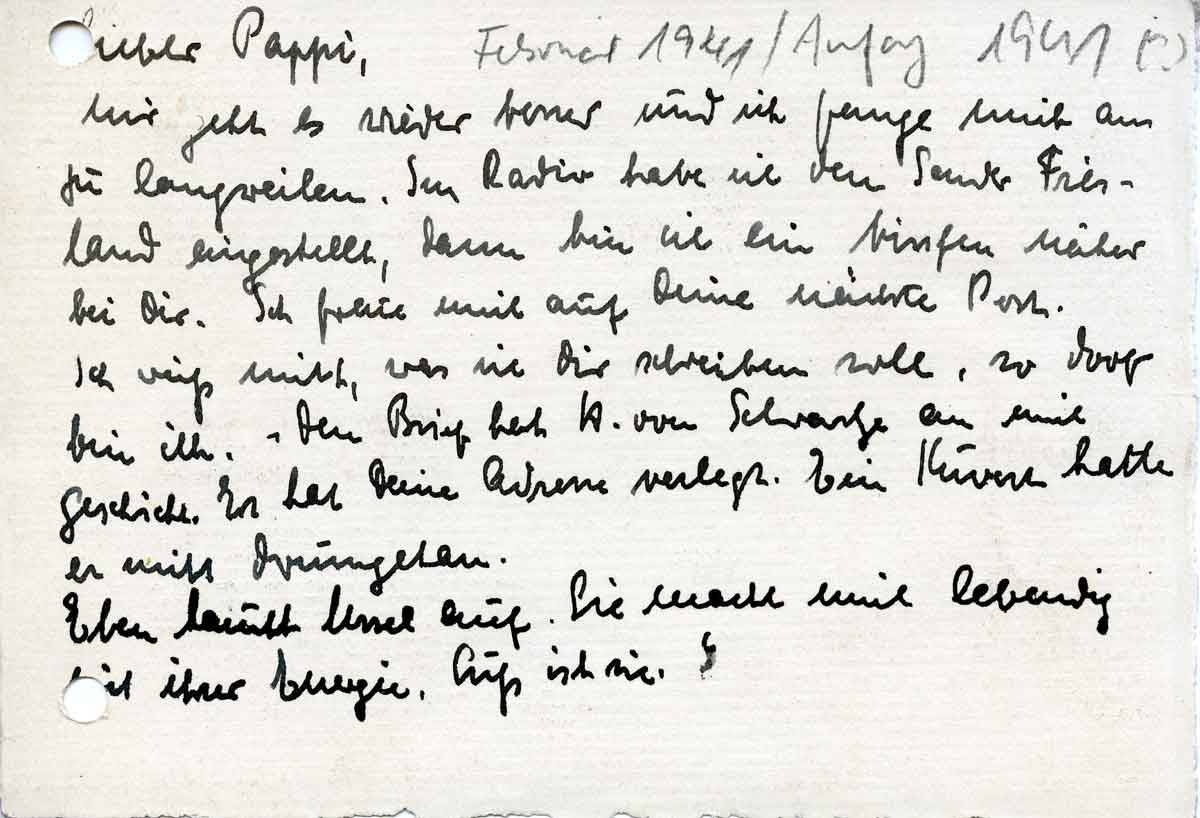 Lieber Pappi, Februar 1941 / Anfang 1941 (?)
mir geht es wieder besser und ich fange mich an
zu langweilen. Im Radio habe ich den Sender Fries-
land eingestellt, dann bin ich ein bisschen näher
bei Dir. Ich freue mich auf Deine nächste Post.
Ich weiß nicht, was ich Dir schreiben soll, so doof
bin ich. - Den Brief hat H. von Schwarze an mich
geschickt. Er hat Deine Adresse verlegt. Ein Kuvert hatte
er nicht drumgetan.
Eben taucht Ussel auf. Sie macht mich lebendig
mit ihrer Energie. Süß ist sie.